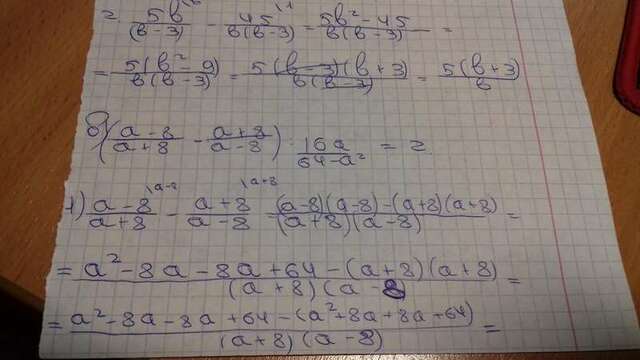 = 5b/(b-3) \b - 45/b(b-3) \1 = 5b²-45/b(b-3) =
= 5(b²-9)/b(b-3) = 5(b-3)(b+3)/b(b-3) = 5(b+3)/b
б) (a-8/a+8 - a+8/a-8) : 16a/64-a² = 2
1) a-8/a+8 \a-8 - a+8/a-8 \a+8 = (a-8)(a-8)-(a+8)(a+8)/(a+8)(a-8) =
= a²-8a-8a+64-(a+8)(a+8)/(a+8)(a-8 =
= a²-8a-8a+64-(a²+8a+8a+64)/(a+8)(a-8) =